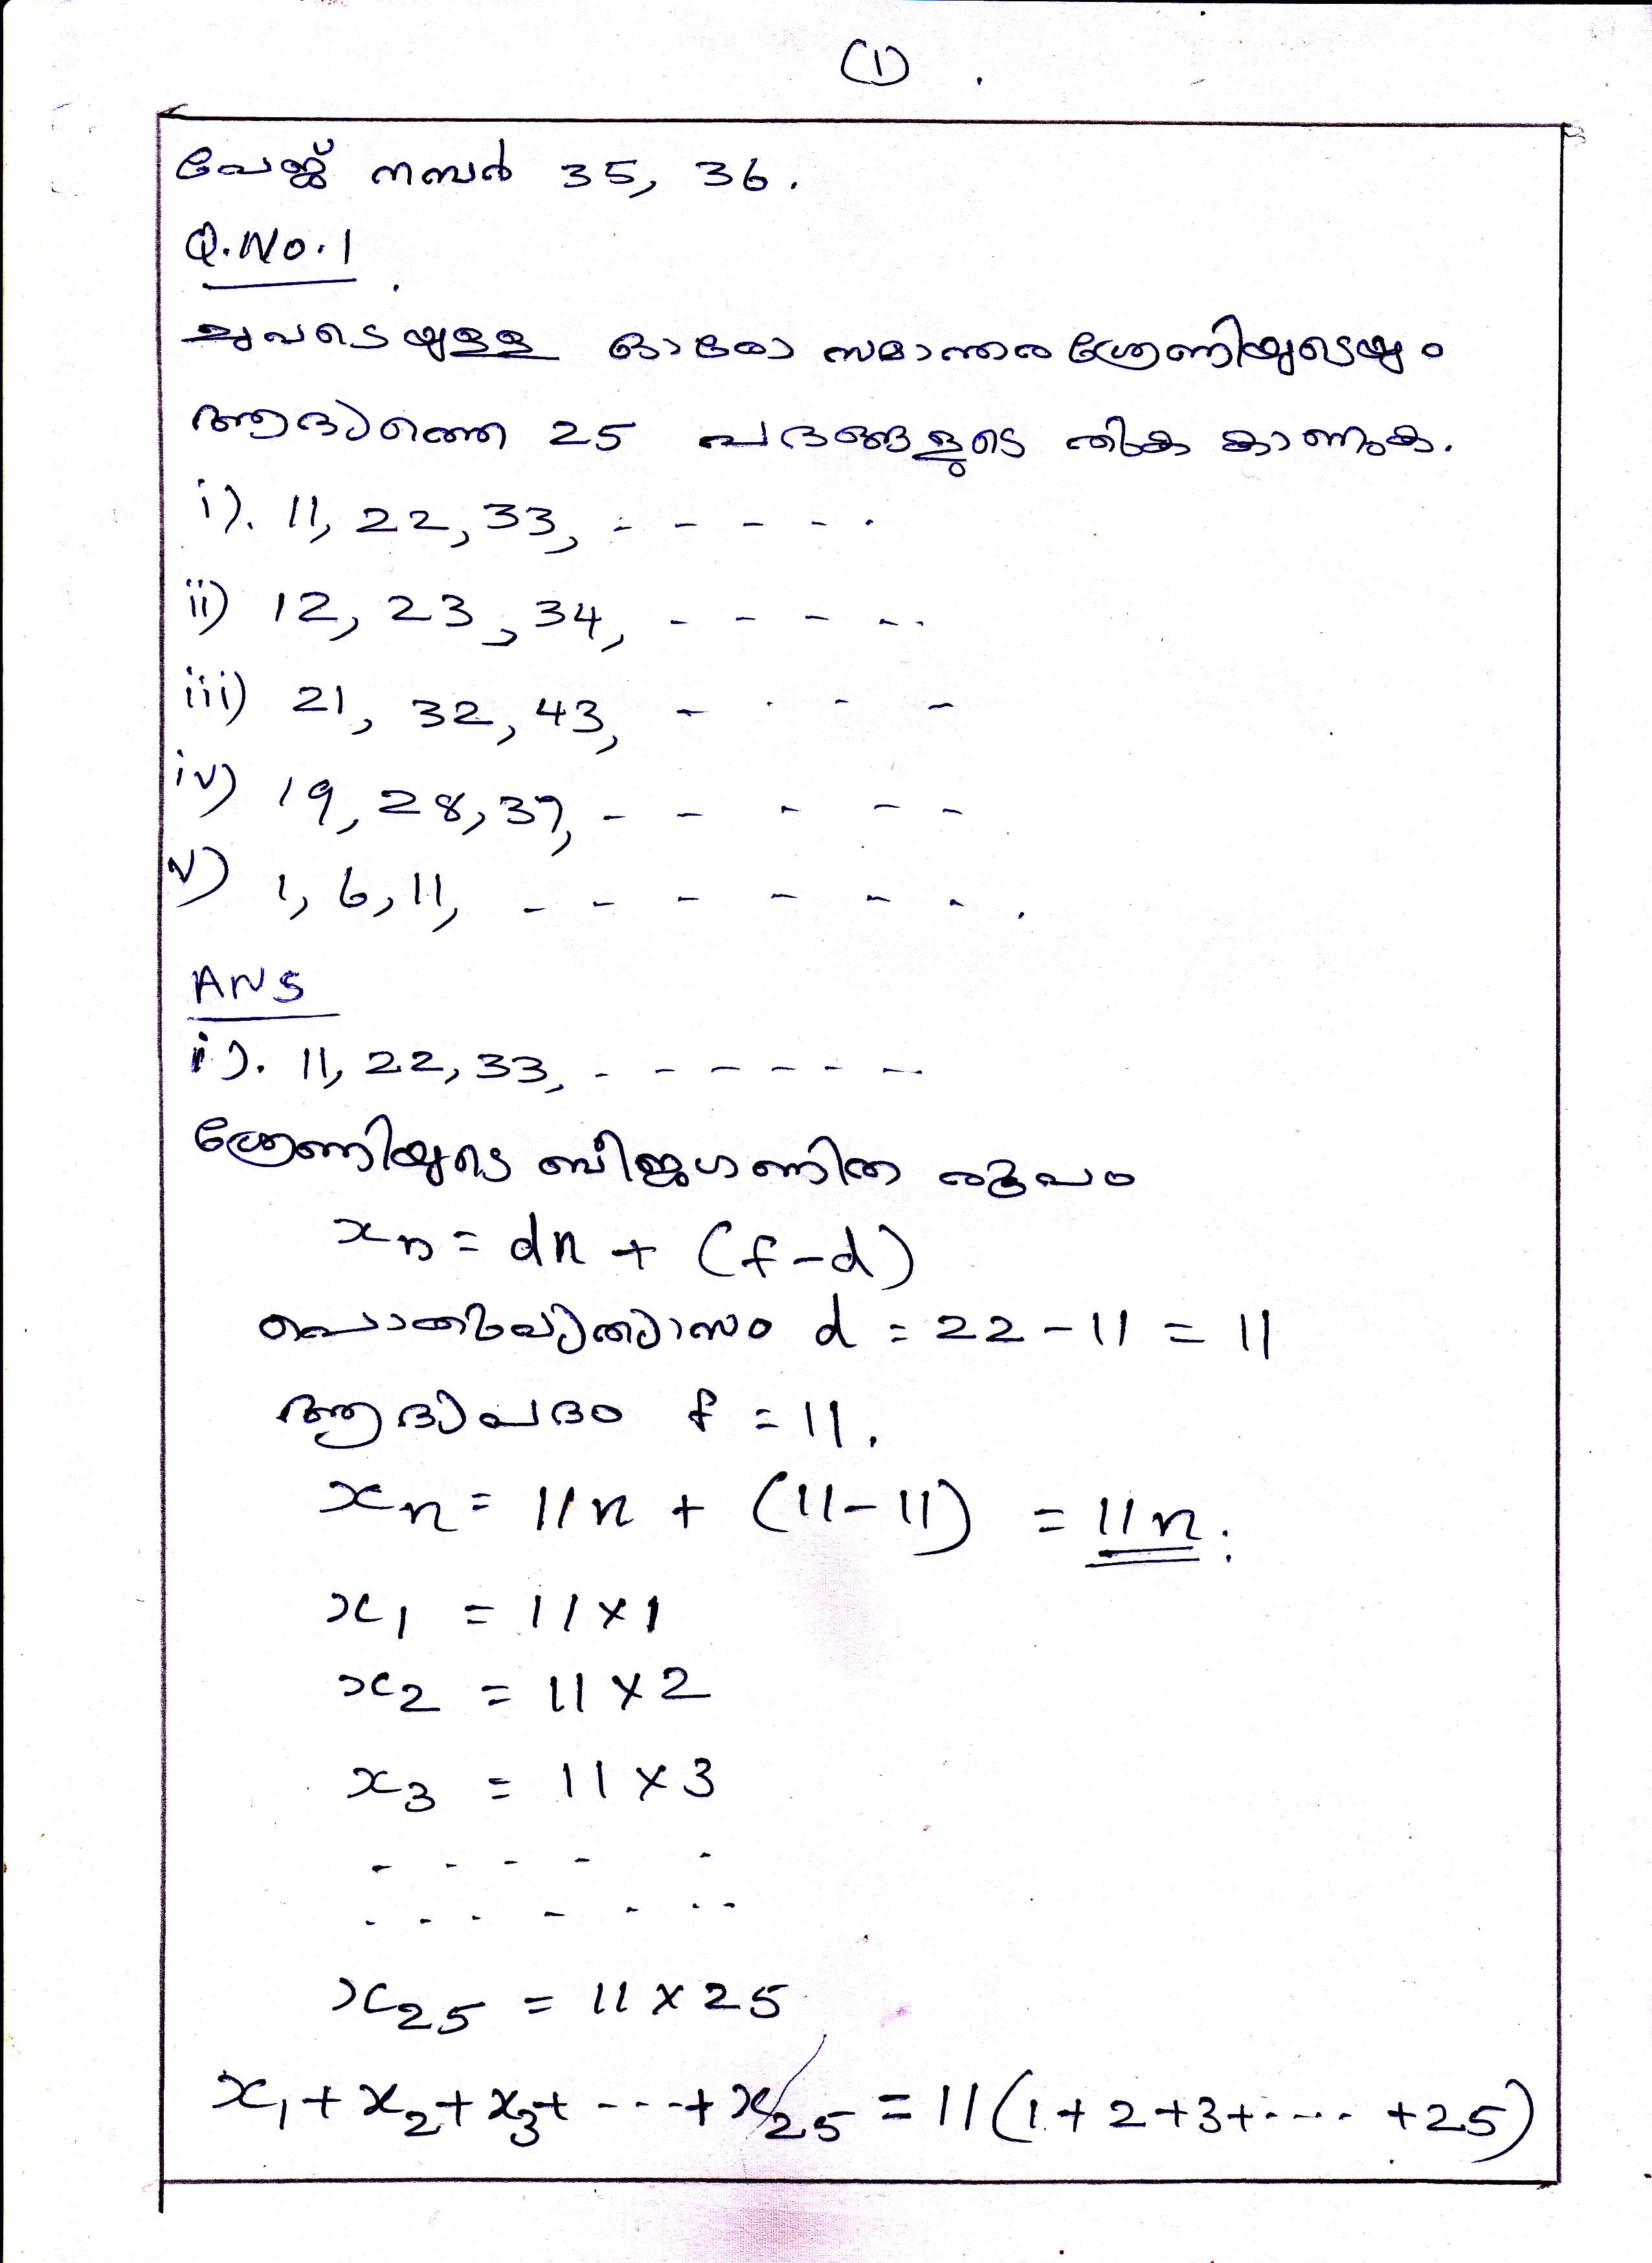 (1)
പേജ് നമ്പർ 35, 36.
Q.No.1
ചുവടെയുള്ള ഓരോ സമാന്തര ശ്രേണിയുടെയും
ആദ്യത്തെ 25 പദങ്ങളുടെ തുക കാണുക.
i). 11, 22, 33, - - - - -
ii) 12, 23, 34, - - - - -
iii) 21, 32, 43, - - - -
iv) 19, 28, 37, - - - - -
v) 1, 6, 11, - - - - - - .
ANS
i). 11, 22, 33, - - - - - - -
ശ്രേണിയുടെ ബീജഗണിത രൂപം
xₙ = dn + (f-d)
പൊതുവ്യത്യാസം d = 22 - 11 = 11
ആദ്യപദം f = 11.
xₙ = 11n + (11-11) = 11n.
x₁ = 11×1
x₂ = 11×2
x₃ = 11×3
- - - - -
- - - - - - -
x₂₅ = 11×25
x₁+x₂+x₃+ - - -+x₂₅ = 11(1+2+3+ - - - +25)